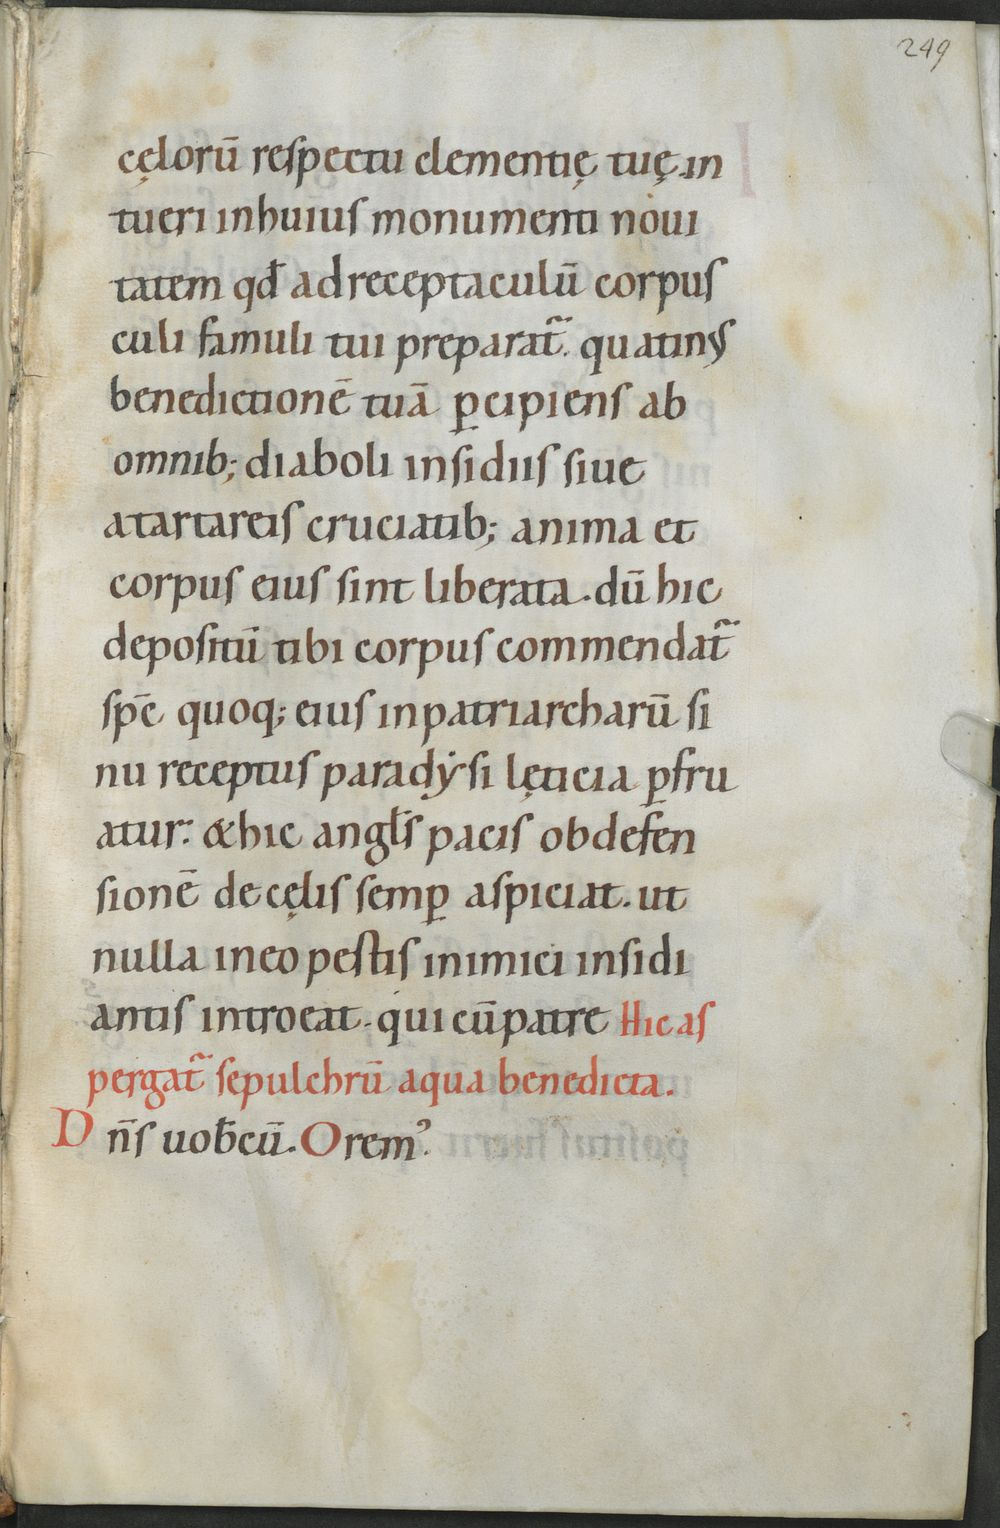 249
cęlorū respectu clementię tuę in
tueri in huius monumenti noui
tatem qđ ad receptaculū corpus
culi famuli tui preparat᷑. quatinꝰ
benedictionē tuā ꝑcipiens ab
omnib; diaboli insidiis siue
a tartareis cruciatib; anima et
corpus eius sint liberata. dū hic
depositū tibi corpus commendat᷑
spē quoq; eius in patriarcharū si
nu receptus paradẏsi lęticia ꝑfru
atur: & hic angl̄s pacis ob defen
sionē de cęlis semꝑ aspiciat. ut
nulla in eo pestis inimici insidi
antis introeat. qui cū patre Hic as
pergat᷑ sepulchrū aqua benedicta.
Dn̄s uob̄cū. Oremꝰ.